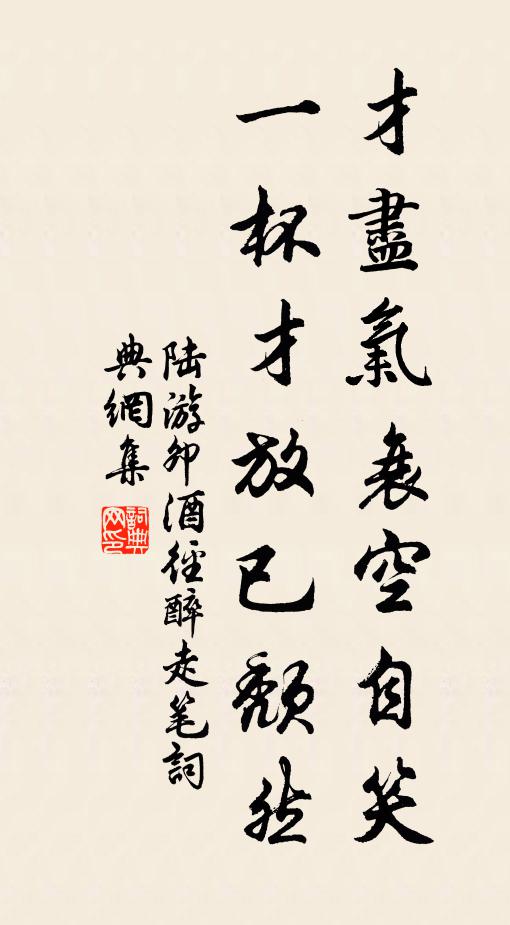 才盡氣衰空自笑
一杯才放已頹然
陸游卯酒徑醉走笔詞
典網集
詞典
网印